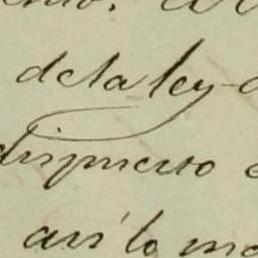 de la ley
dispuesto
así lo